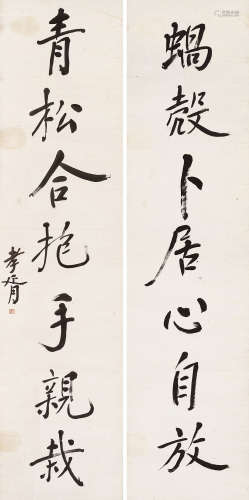 蝸殼卜居心自放
青松合抱手親栽
孝胥